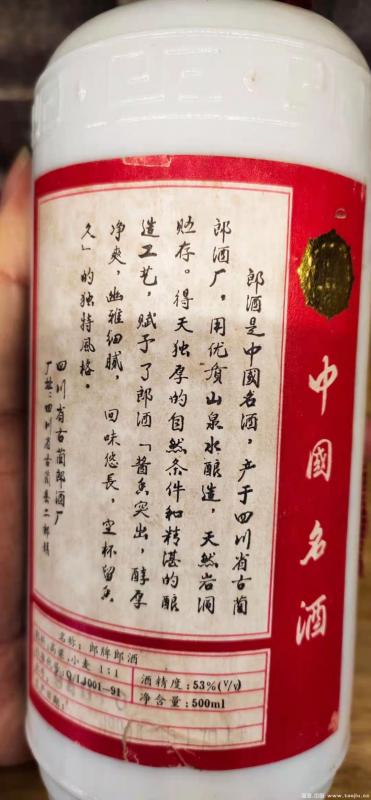 郎酒是中國名酒，产于四川省古蔺
郎酒厂，用优质山泉水酿造，天然岩洞
贮存。得天独厚的自然条件和精湛的酿
造工艺，赋予了郎酒「酱香突出，醇厚
净爽，幽雅细腻，回味悠長，空杯留香
久」的独特風格。
四川省古蔺郎酒厂
厂址：四川省古蔺县二郎镇
中國名酒
名称：郎牌郎酒
高粱，小麦 1:1
Q/LJ001-91
酒精度：53%(V/V)
净含量：500ml
www.taojiu.cn